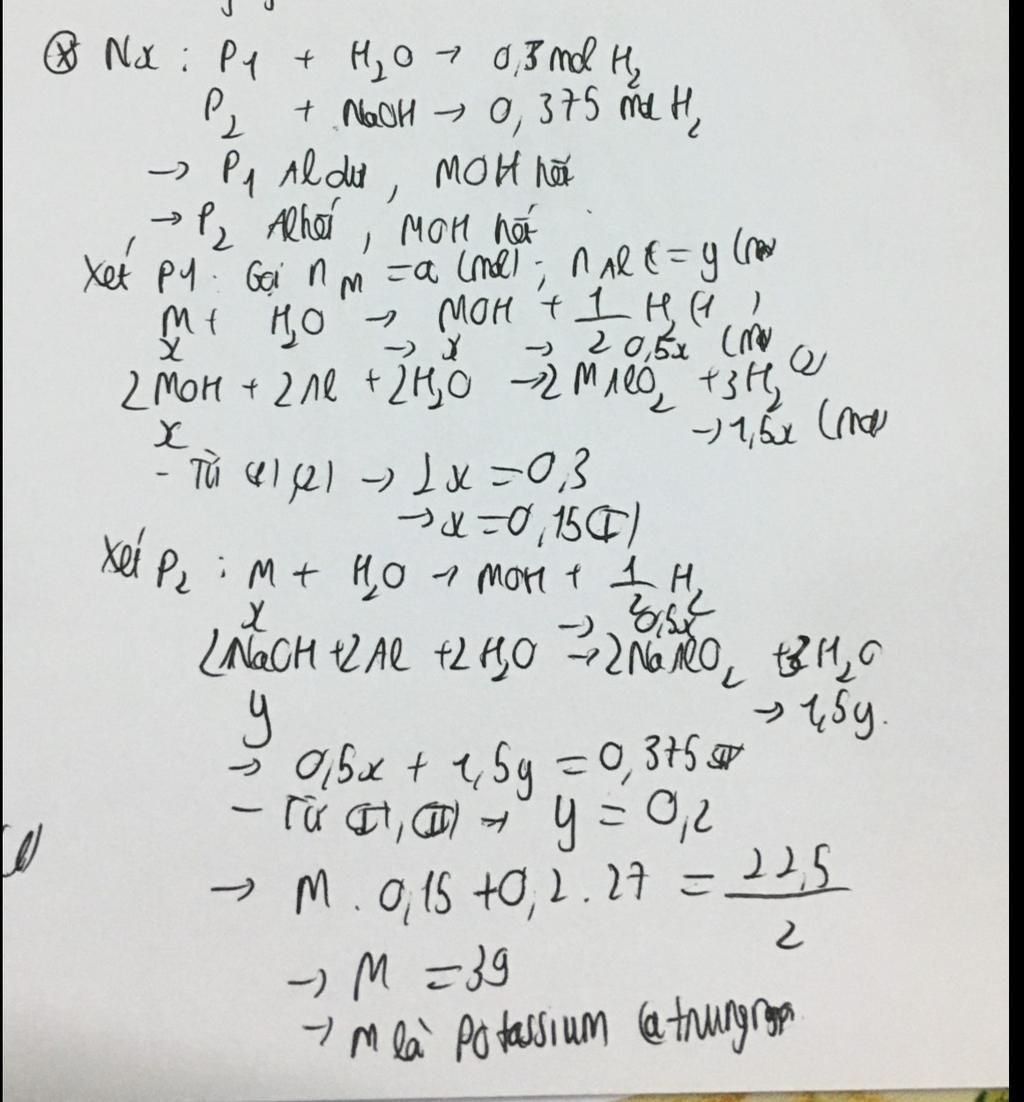 ⊛ Nx : P1 + H₂O → 0,3 mol H₂
P₂ + NaOH → 0,375 mol H₂
→ P1 Al dư, MOH hết
→ P₂ Al hết, MOH hết
Xét P1: Gọi n M = a (mol); n Al = y (mol
M + H₂O → MOH + 1/2 H₂ (1)
x → x → 0,5x (mol
2MOH + 2Al + 2H₂O → 2MAlO₂ + 3H₂ (2)
x → 1,5x (mol
- Từ (1) (2) → 2x = 0,3
→ x = 0,15 (I)
Xét P₂ : M + H₂O → MOH + 1/2 H₂
x → 0,5x
2NaOH + 2Al + 2H₂O → 2NaAlO₂ + 3H₂O
y → 1,5y.
→ 0,5x + 1,5y = 0,375 (II)
- Từ (I), (II) → y = 0,2
→ M . 0,15 + 0,2 . 27 = 22,5/2
→ M = 39
→ M là Potassium